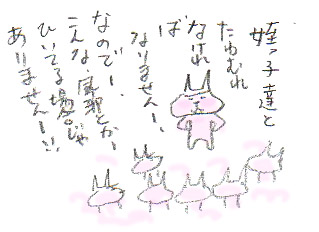 姪っ子達と
たわむれ
なければ
ば
なりませんー、
なのでー、
こんな、風邪とかー
ひいてる場合じゃ
ありませんーい